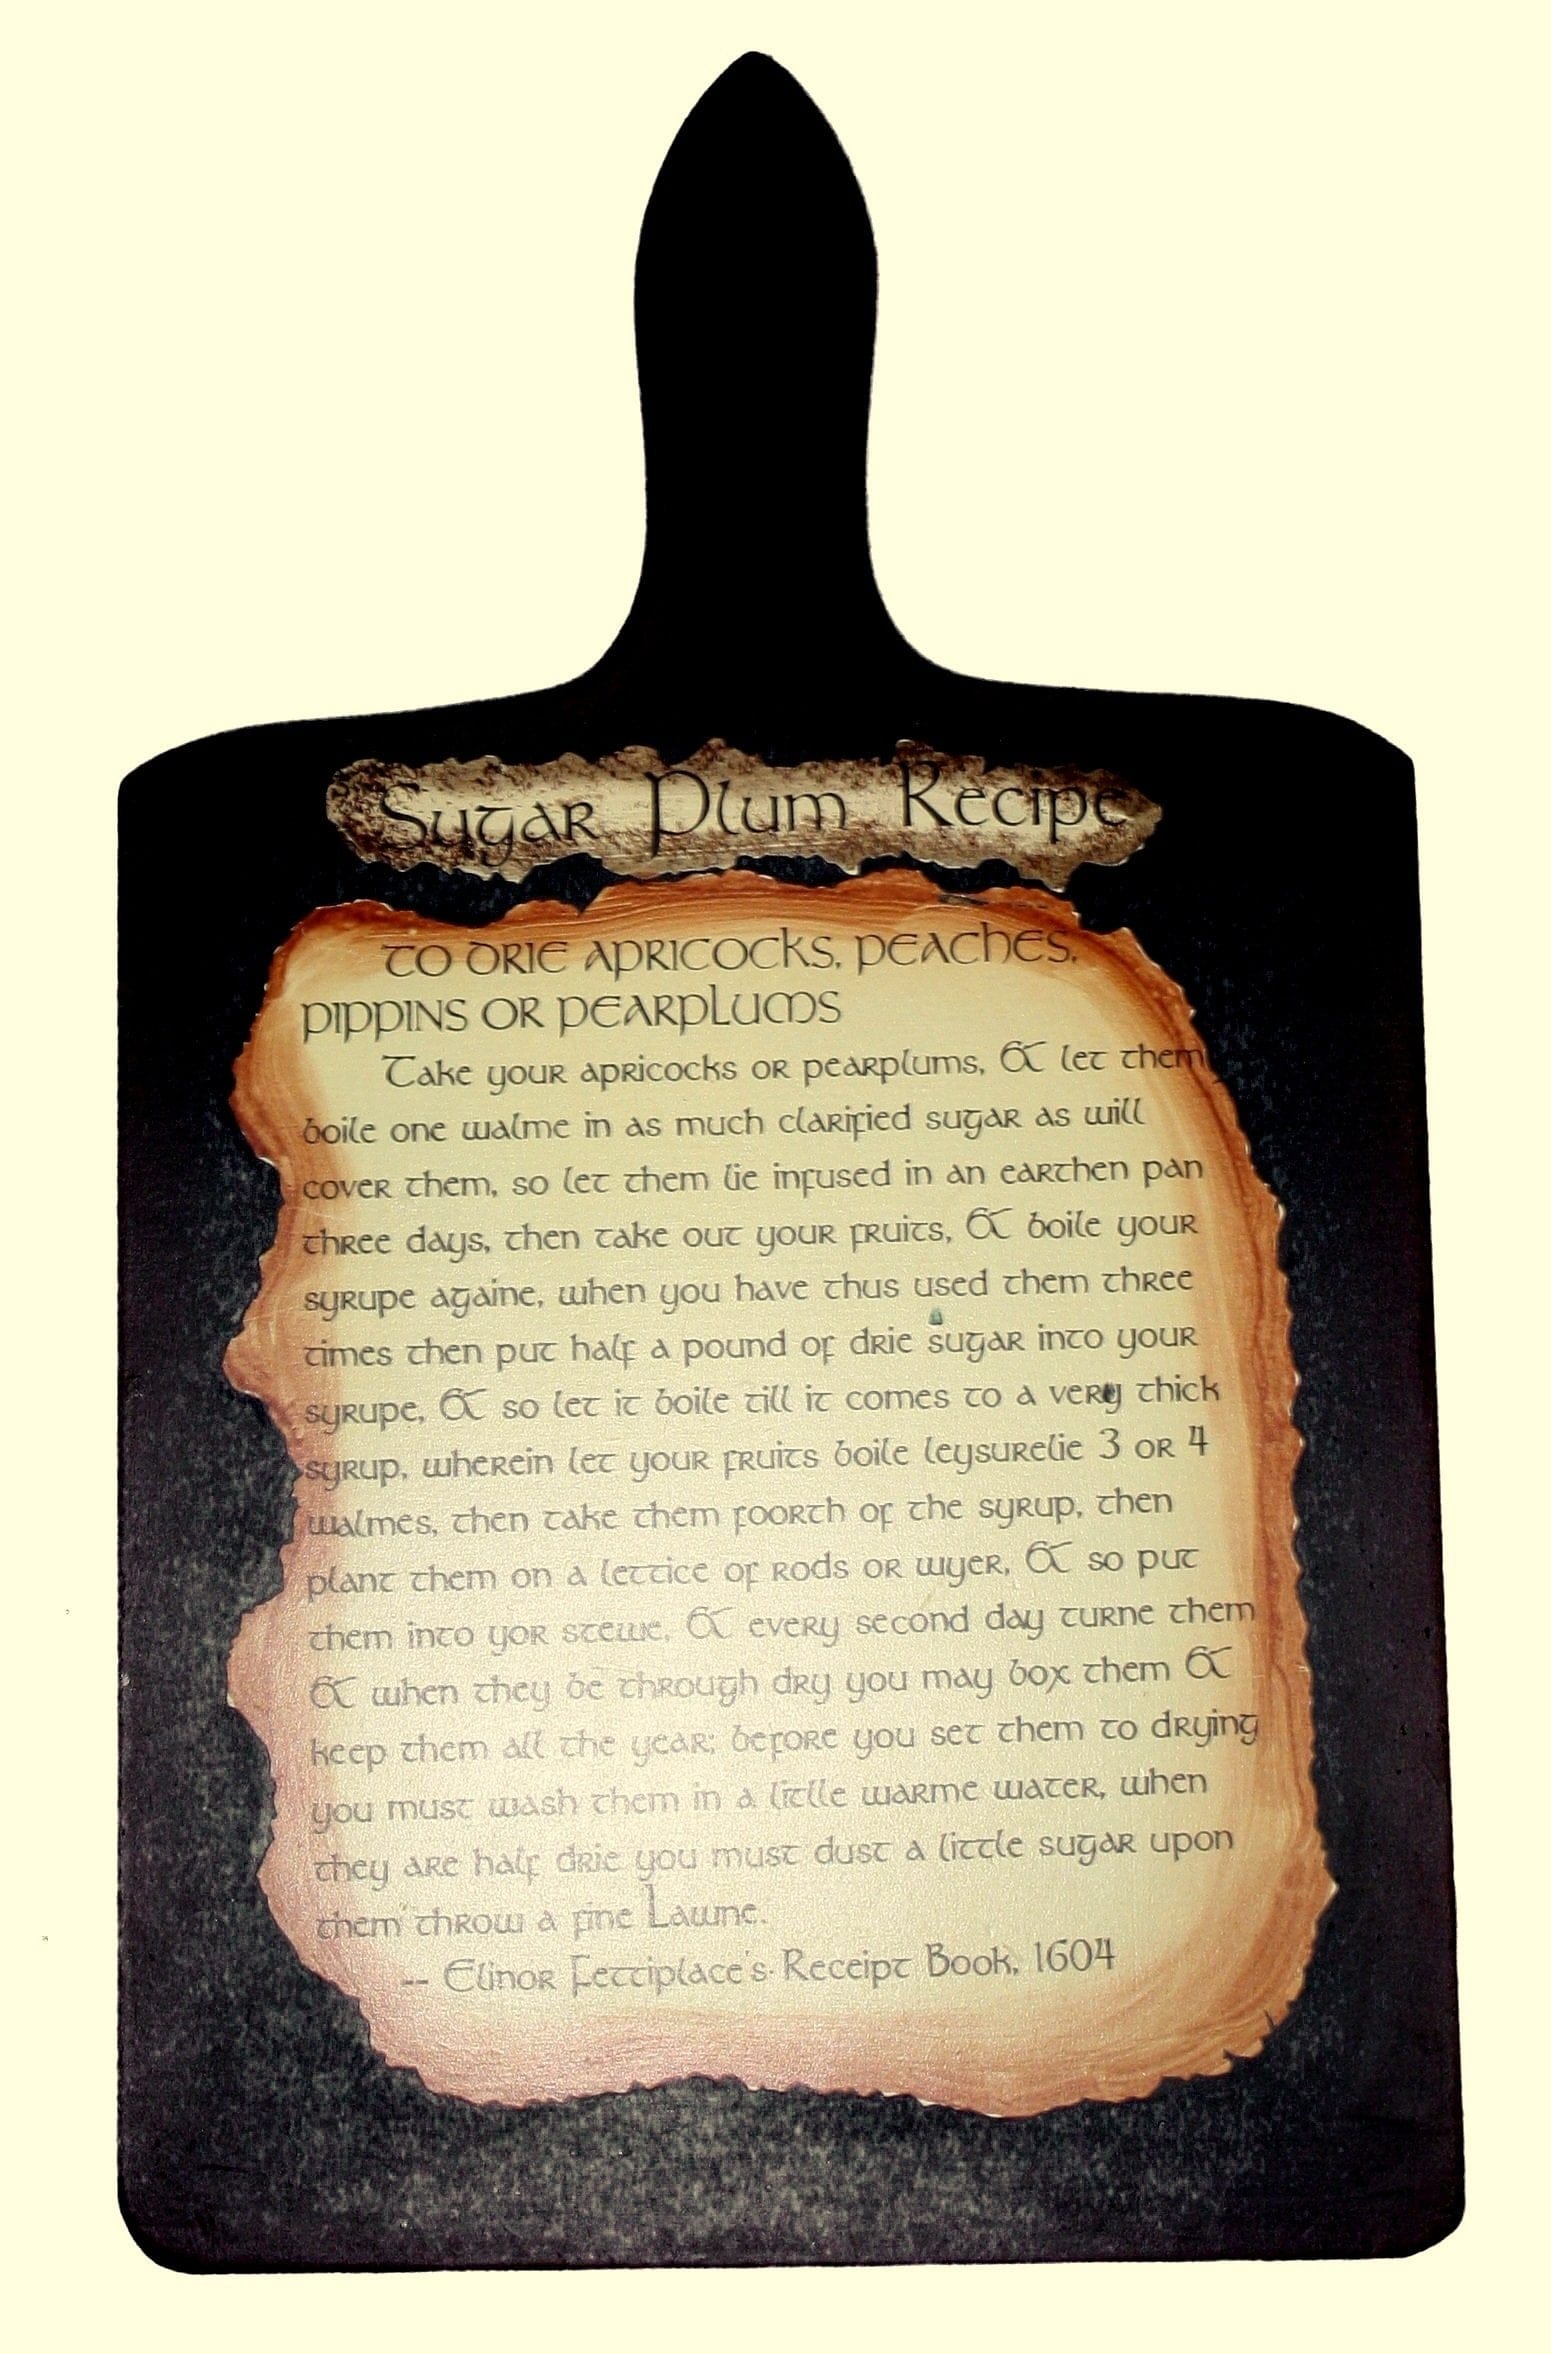 Sugar Plum Recipe
TO DRIE APRICOCKS, PEACHES,
PIPPINS OR PEARPLUMS
Take your apricocks or pearplums, & let them
boile one walme in as much clarified sugar as will
cover them, so let them lie infused in an earthen pan
three days, then take out your fruits, & boile your
syrupe againe, when you have thus used them three
times then put half a pound of drie sugar into your
syrupe, & so let it boile till it comes to a very thick
syrup, wherein let your fruits boile leysurelie 3 or 4
walmes, then take them foorth of the syrup, then
plant them on a lettice of rods or wyer, & so put
them into yor stewe, & every second day turne them
& when they be through dry you may box them &
keep them all the year; before you set them to drying
you must wash them in a litlle warme water, when
they are half drie you must dust a little sugar upon
them throw a fine Lawne.
-- Elinor Fettiplace's Receipt Book, 1604